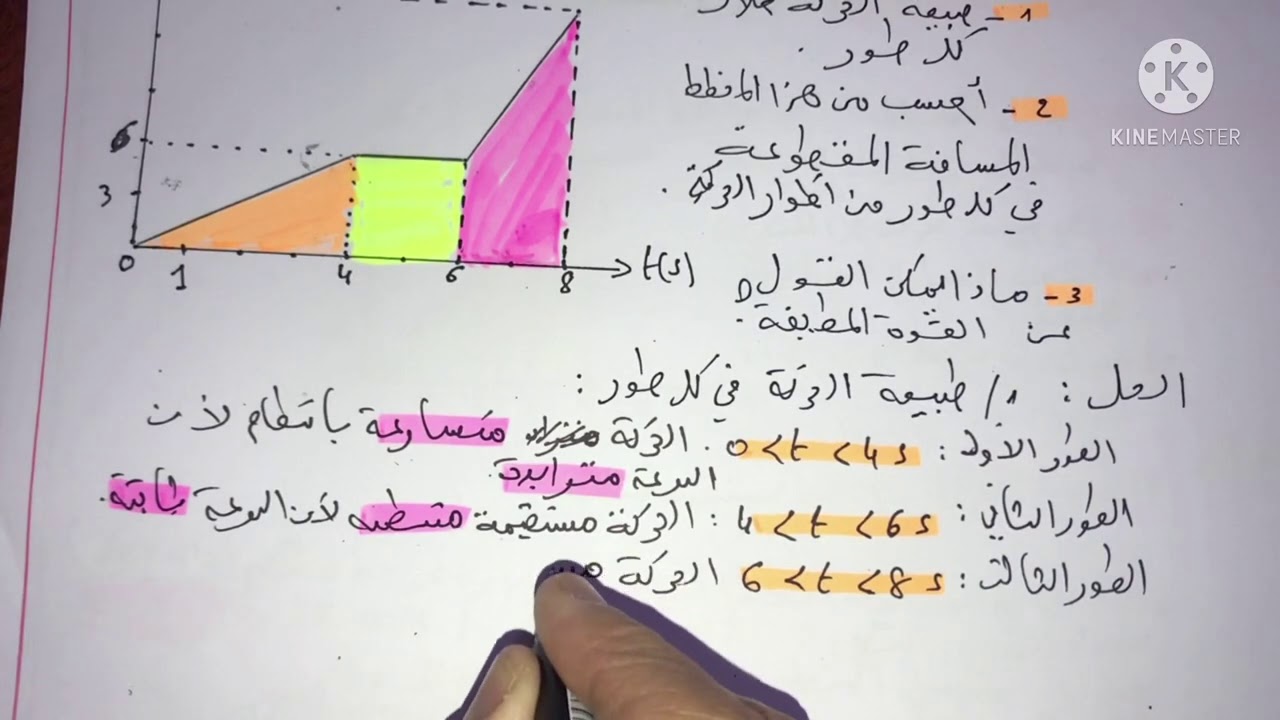 1 - طبيعة الحركة خلال
كل طور.
2 - أحسب من هذا المخطط
المسافة المقطوعة
في كل طور من أطوار الحركة.
3 - ماذا يمكن القول
عن القوة المطبقة؟
6
3
0
1
4
6
8
t(s)
الحل: 1/ طبيعة الحركة في كل طور:
الطور الأول: 0 < t < 4s. الحركة متسارعة بانتظام لأن
السرعة متزايدة.
الطور الثاني: 4 < t < 6s: الحركة مستقيمة منتظمة لأن السرعة ثابتة.
الطور الثالث: 6 < t < 8s الحركة
K
KINEMASTER